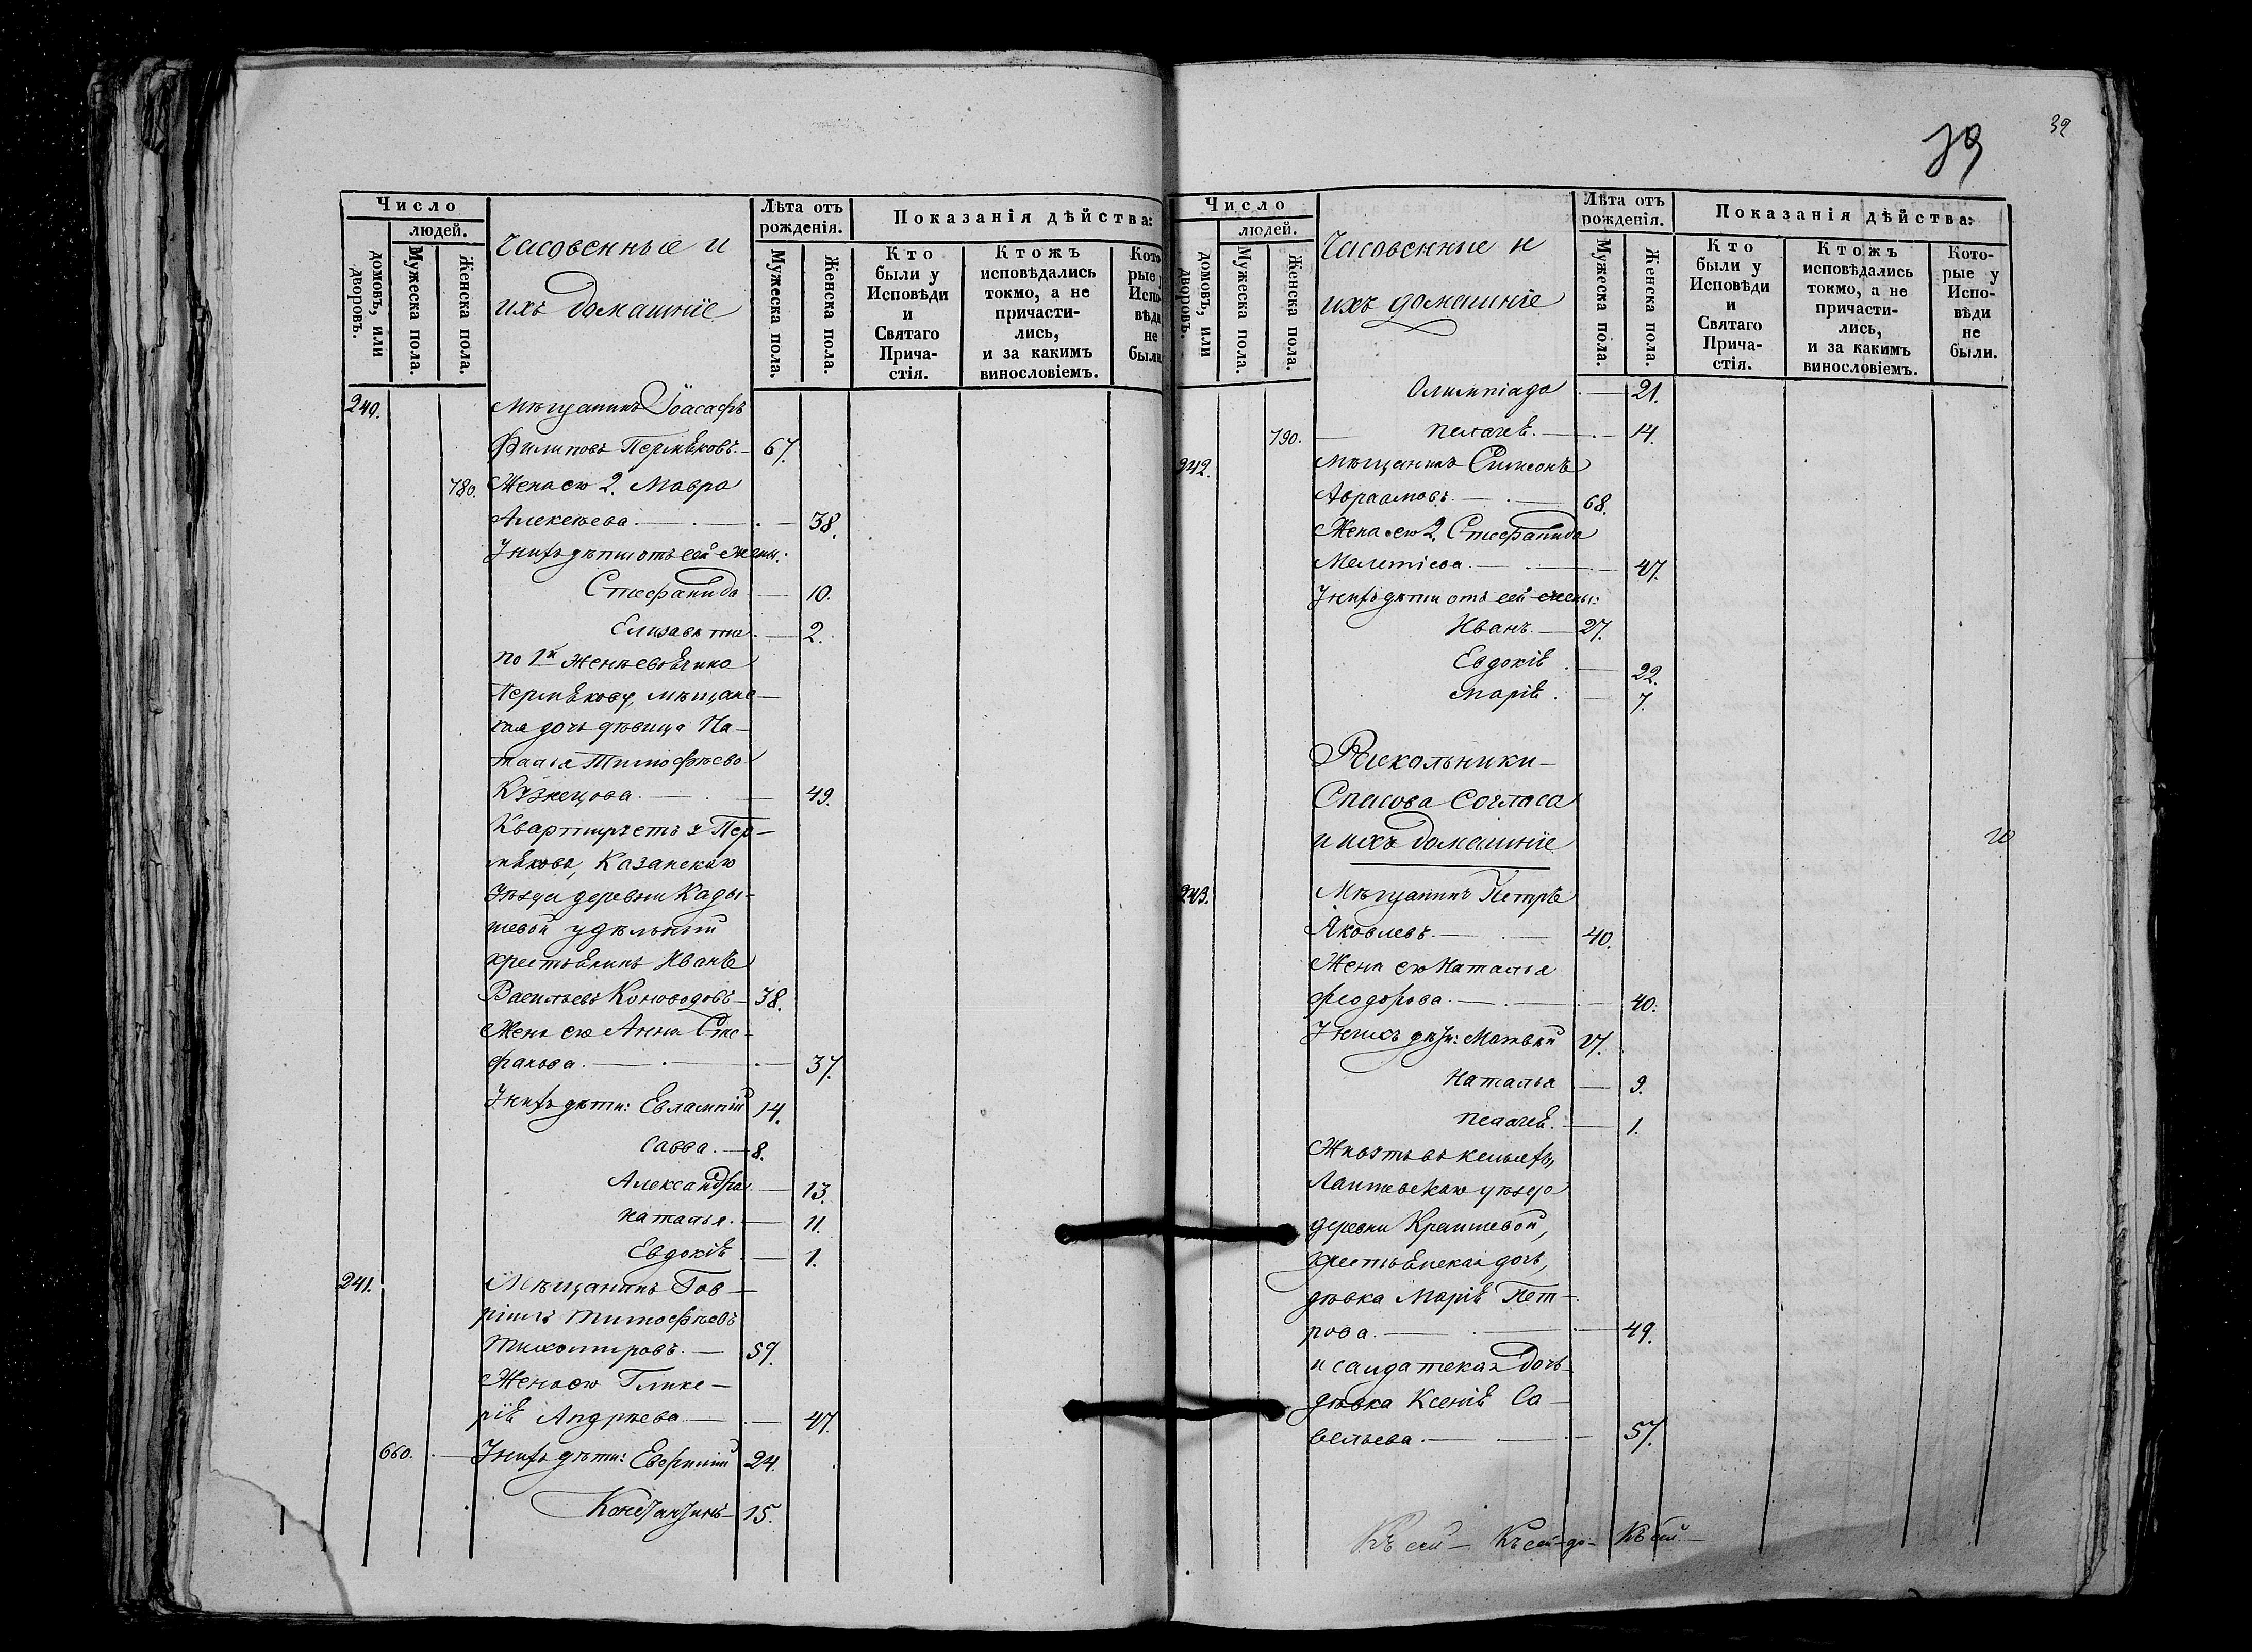 39
39
Число
людей.
домовъ, или дворовъ.
Мужеска пола.
Женска пола.
Часовенные и
ихъ домашніе
Лѣта отъ рожденія.
Мужеска пола.
Женска пола.
Показанія дѣйства:
Кто были у Исповѣди и Святаго Прича-стія.
Ктожъ исповѣдались токмо, а не причасти-лись, и за какимъ винословіемъ.
Кото-рые у Испо-вѣди не были
240. Мѣщанинъ Іоасафъ
Филиповъ Пермяковъ. — 67.
780. Жена его 2. Мавра
Алексѣева. — 38.
У нихъ дѣти отъ сей жены:
Стефанида — 10.
Елизавета. — 2.
по 1й женѣ своячина
Пермякову, мѣщанс-
кая дочь дѣвица На-
талья Тимофѣева
Кузнецова. — 49.
Квартируетъ у Пер-
мякова, Казанскаго
уѣзда деревни Кады-
шевой удѣльный
крестьянинъ Иванъ
Васильевъ Коноводовъ — 38.
Жена его Анна Сте-
фанова. — 37.
У нихъ дѣти: Евлампій 14.
Савва. — 8.
Александра. — 13.
Наталья. — 11.
Евдокія — 1.
241. Мѣщанинъ Гав-
ріилъ Тимофѣевъ
Тихомировъ. — 59.
Жена его Глике-
рія Андреева. — 47.
660. У нихъ дѣти: Евфимій 24.
Константинъ — 15.
Число
людей.
домовъ, или дворовъ.
Мужеска пола.
Женска пола.
Часовенные и
ихъ домашніе
Лѣта отъ рожденія.
Мужеска пола.
Женска пола.
Показанія дѣйства:
Кто были у Исповѣди и Святаго Прича-стія.
Ктожъ исповѣдались токмо, а не причасти-лись, и за какимъ винословіемъ.
Кото-рые у Испо-вѣди не были.
Олимпіада — 21.
790. — Пелагея. — 14.
242. Мѣщанинъ Симеонъ
Авраамовъ. — 68.
Жена его 2. Стефанида
Мелетіева. — 47.
У нихъ дѣти отъ сей жены:
Иванъ. — 27.
Евдокія — 22.
Марія. — 7.
Раскольники
Спасова Согласа
и ихъ домашніе
243. Мѣщанинъ Петръ
Яковлевъ. — 40.
Жена его Наталья
Феодорова. — 40.
У нихъ дѣти: Матвѣй 17.
Наталья — 9.
Пелагея. — 1.
Живутъ въ кельяхъ,
Лаишевскаго уѣзда
деревни
крестьянская дочь,
дѣвка Марія Пет-
рова. — 49.
и салдатская дочь
дѣвка Ксенія Са-
вельева. — 57.
Къ сей — Къ сей — Къ сей —